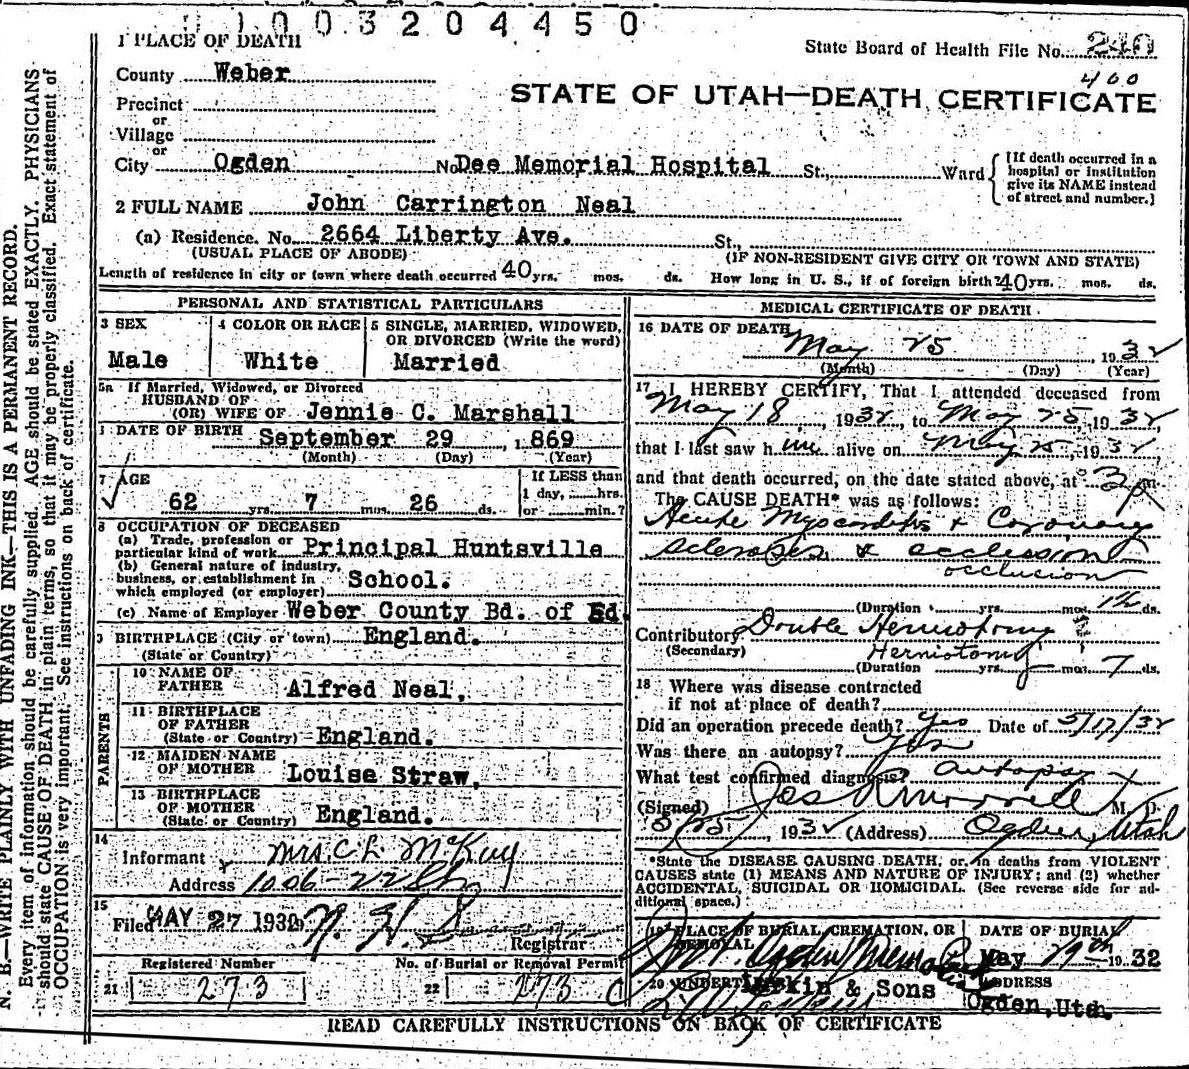 1003204450
1 PLACE OF DEATH
State Board of Health File No. 240
400
County Weber
STATE OF UTAH—DEATH CERTIFICATE
Precinct
or
Village
or
City Ogden No. Dee Memorial Hospital St., Ward
[If death occurred in a
hospital or institution
give its NAME instead
of street and number.]
2 FULL NAME John Carrington Neal
(a) Residence. No. 2664 Liberty Ave. St.,
(USUAL PLACE OF ABODE) (IF NON-RESIDENT GIVE CITY OR TOWN AND STATE)
Length of residence in city or town where death occurred 40 yrs. mos. ds. How long in U. S., if of foreign birth? 40 yrs. mos. ds.
PERSONAL AND STATISTICAL PARTICULARS
3 SEX
Male
4 COLOR OR RACE
White
5 SINGLE, MARRIED, WIDOWED,
OR DIVORCED (Write the word)
Married
5a If Married, Widowed, or Divorced
HUSBAND OF
(OR) WIFE OF Jennie C. Marshall
DATE OF BIRTH September 29, 1869
(Month) (Day) (Year)
7 AGE
62 yrs. 7 mos. 26 ds.
If LESS than
1 day, hrs.
or min.?
8 OCCUPATION OF DECEASED
(a) Trade, profession or
particular kind of work Principal Huntsville
(b) General nature of industry,
business, or establishment in
which employed (or employer) School.
(c) Name of Employer Weber County Bd. of Ed.
9 BIRTHPLACE (City or town) England.
(State or Country)
PARENTS
10 NAME OF
FATHER Alfred Neal,
11 BIRTHPLACE
OF FATHER
(State or Country) England.
12 MAIDEN NAME
OF MOTHER Louise Straw,
13 BIRTHPLACE
OF MOTHER
(State or Country) England.
14
Informant Mrs. C L McKay
Address 1006-22 St
15
Filed MAY 27 1932
Registrar
Registered Number
21 273
No. of Burial or Removal Permit
22 273 C
MEDICAL CERTIFICATE OF DEATH
16 DATE OF DEATH
May 25, 1932
(Month) (Day) (Year)
17 I HEREBY CERTIFY, That I attended deceased from
May 18, 1932, to May 25, 1932,
that I last saw him alive on May 25, 1932,
and that death occurred, on the date stated above, at 3 p m.
The CAUSE DEATH* was as follows:
Acute Myocarditis & Coronary
sclerosis & occlession
occlusion
(Duration yrs. mos. ds.
Contributory Double Herniotomy
(Secondary) Herniotomy
(Duration yrs. mos. 7 ds.
18 Where was disease contracted
if not at place of death?
Did an operation precede death? Yes Date of 5/17/32
Was there an autopsy? Yes
What test confirmed diagnosis? autopsy
(Signed) M. D.
5/25, 1932 (Address) Ogden, Utah
*State the DISEASE CAUSING DEATH, or, in deaths from VIOLENT
CAUSES state (1) MEANS AND NATURE OF INJURY; and (2) whether
ACCIDENTAL, SUICIDAL OR HOMICIDAL. (See reverse side for ad-
ditional space.)
19 PLACE OF BURIAL, CREMATION, OR
REMOVAL
DATE OF BURIAL
May 29th 1932
20 UNDERTAKER Larkin & Sons
ADDRESS
Ogden, Utah.
READ CAREFULLY INSTRUCTIONS ON BACK OF CERTIFICATE
N. B.—WRITE PLAINLY WITH UNFADING INK—THIS IS A PERMANENT RECORD.
Every item of information should be carefully supplied. AGE should be stated EXACTLY. PHYSICIANS
should state CAUSE OF DEATH in plain terms, so that it may be properly classified. Exact statement of
OCCUPATION is very important. See instructions on back of certificate.